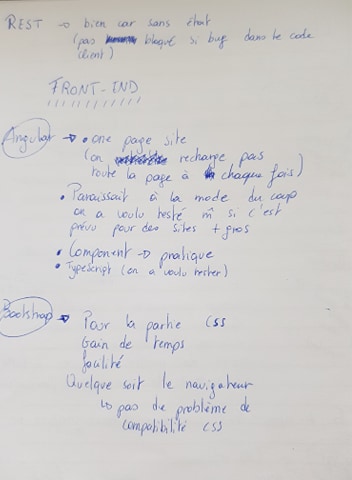 REST → bien car sans était
(pas bloqué si bug dans le code
client)
FRONT-IND
Angular → • one page site
(on recharge pas
toute la page à chaque fois)
• Paraissait à la mode du coup
on a voulu testé m̂ si c'est
prévu pour des sites + gros
• Component → pratique
• TypeScript (on a voulu tester)
Bootshap → Pour la partie CSS
Gain de temps
facilité
Quelque soit le navigateur
↳ pas de problème de
compatibilité CSS